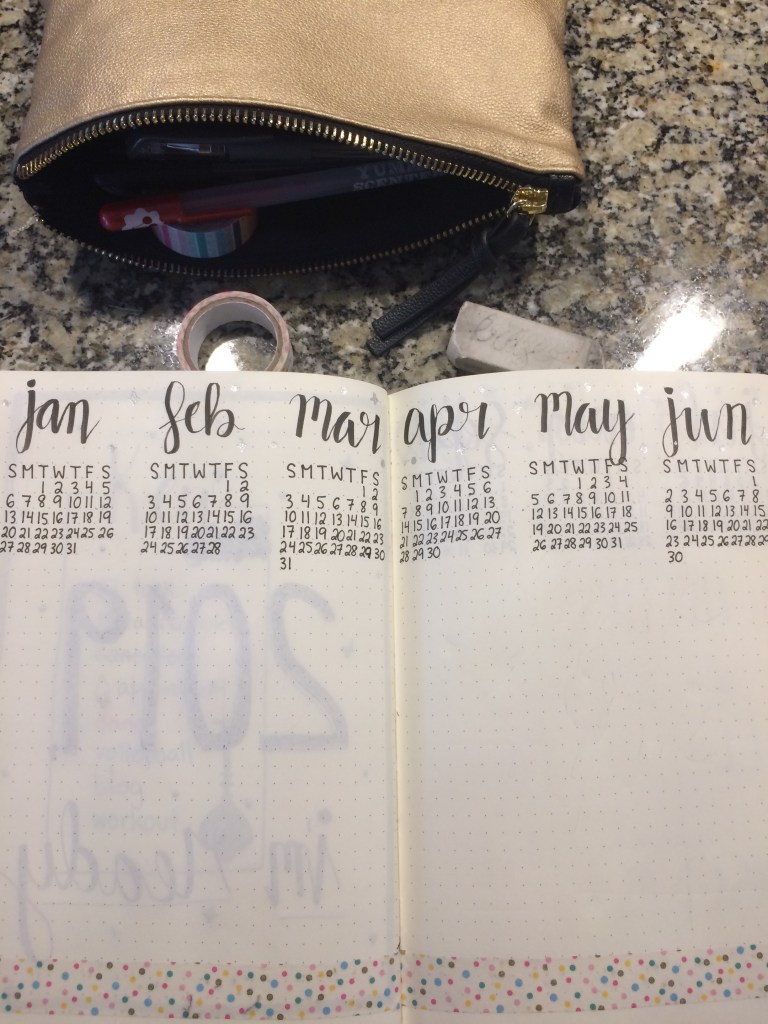 YUM
SCENT
jan
S M T W T F S
1 2 3 4 5
6 7 8 9 10 11 12
13 14 15 16 17 18 19
20 21 22 23 24 25 26
27 28 29 30 31
feb
S M T W T F S
1 2
3 4 5 6 7 8 9
10 11 12 13 14 15 16
17 18 19 20 21 22 23
24 25 26 27 28
mar
S M T W T F S
1 2
3 4 5 6 7 8 9
10 11 12 13 14 15 16
17 18 19 20 21 22 23
24 25 26 27 28 29 30
31
apr
S M T W T F S
1 2 3 4 5 6
7 8 9 10 11 12 13
14 15 16 17 18 19 20
21 22 23 24 25 26 27
28 29 30
may
S M T W T F S
1 2 3 4
5 6 7 8 9 10 11
12 13 14 15 16 17 18
19 20 21 22 23 24 25
26 27 28 29 30 31
jun
S M T W T F S
1
2 3 4 5 6 7 8
9 10 11 12 13 14 15
16 17 18 19 20 21 22
23 24 25 26 27 28 29
30
2019
i'm ready